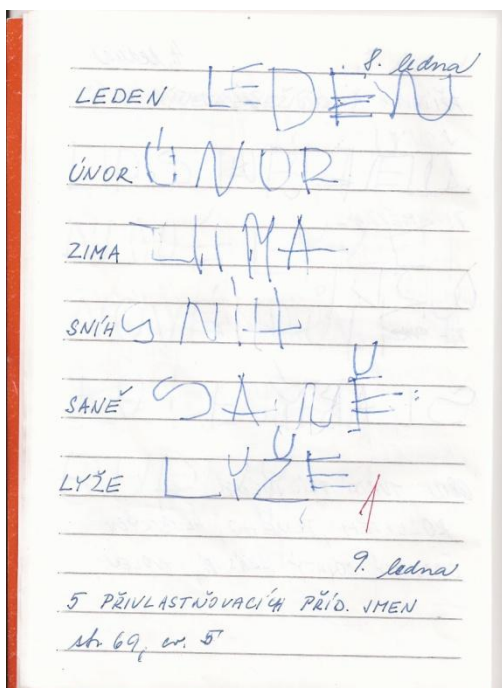 8. ledna
LEDEN LEDEN
ÚNOR ÚNOR
ZIMA ZIMA
SNÍH SNÍH
SANĚ SANĚ
LYŽE LYŽE
1
9. ledna
5 PŘIVLASTŇOVACÍCH PŘÍD. JMEN
str 69, cv. 5